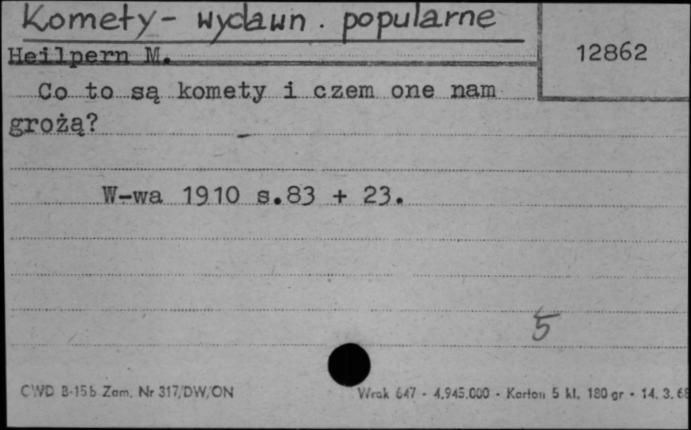 Komety - wydawn. popularne
12862
Heilpern M.
Co to są komety i czem one nam
grożą?
W-wa 1910 s.83 + 23.
5
CWD B-15b Zam. Nr 317/DW/ON
Wrak 647 - 4.945.000 - Karton 5 kl. 180 gr - 14. 3. 68